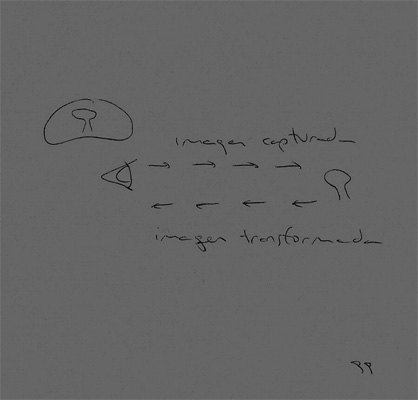 imagen capturada
imagen transformada